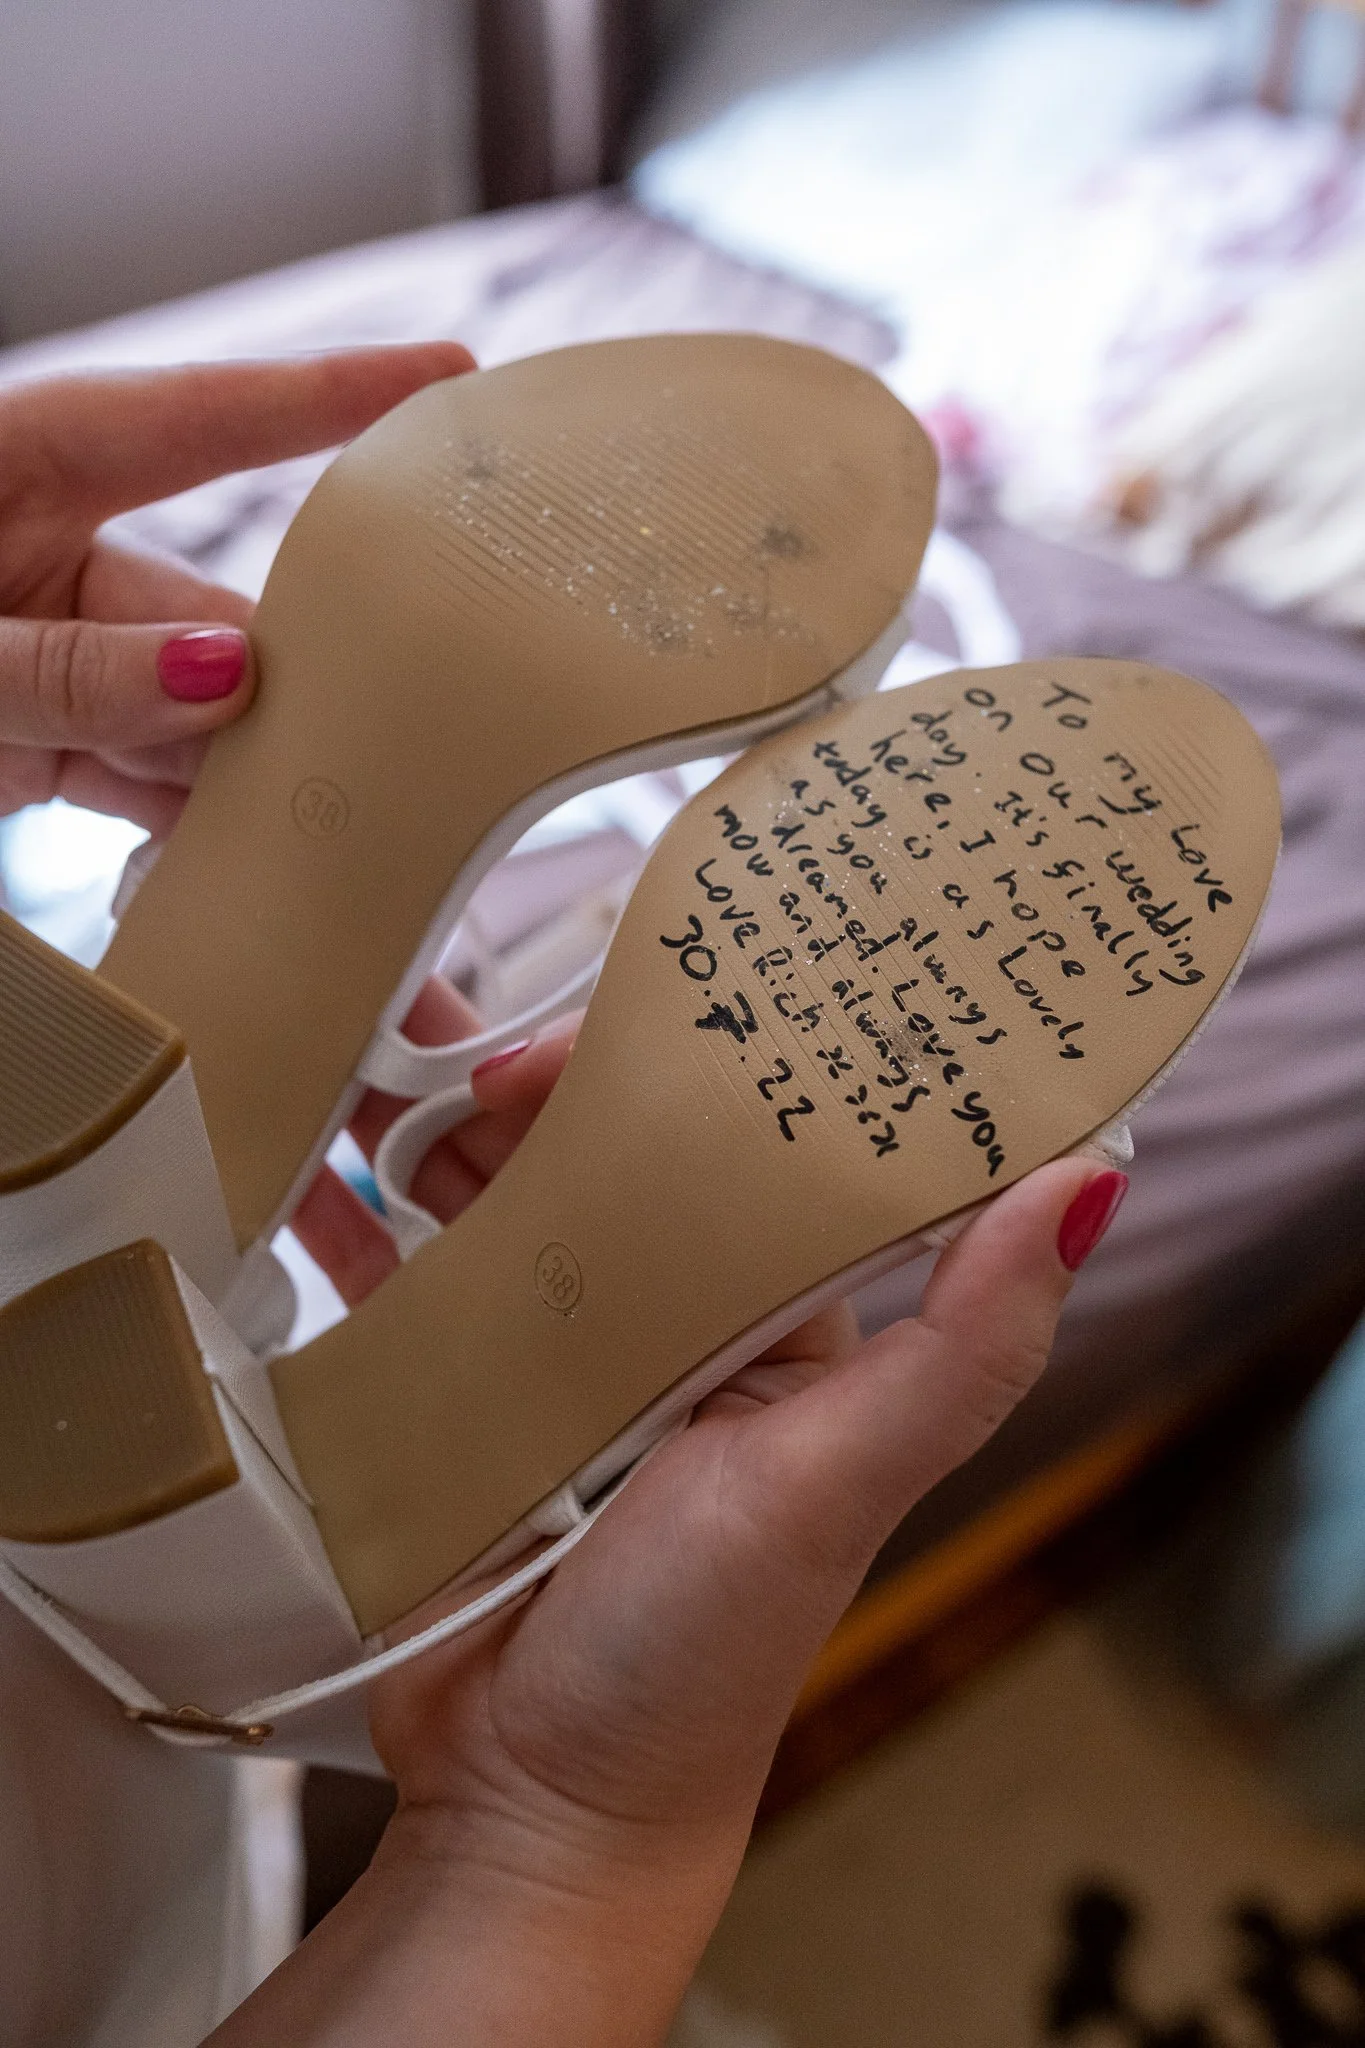 To my Love
on our wedding
day. It's finally
here, I hope
today is as Lovely
as you always
dreamed. Love you
mow and always
Love Rich x x x
30.7.22
38
38